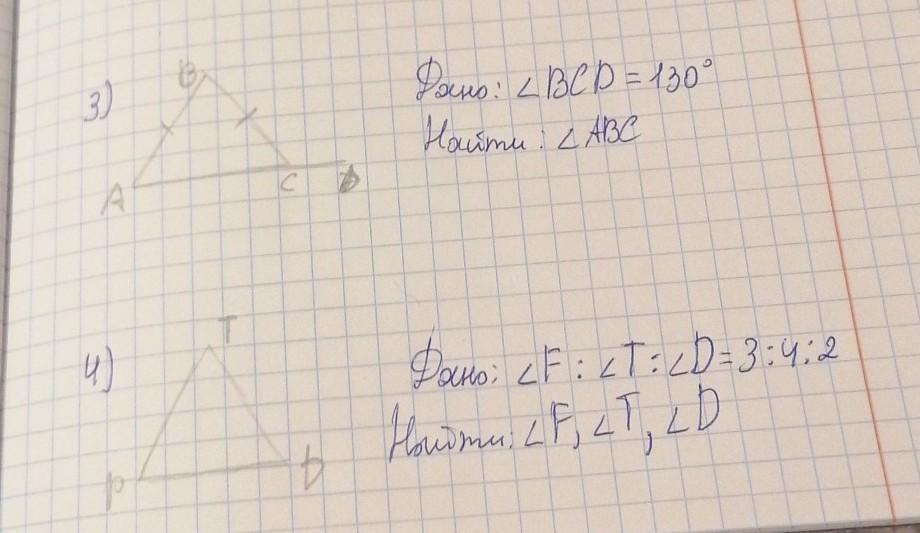 3)
B
A
C
D
Дано: ∠BCD = 130°
Найти: ∠ABC
4)
T
P
D
Дано: ∠F : ∠T : ∠D = 3 : 4 : 2
Найти: ∠F, ∠T, ∠D